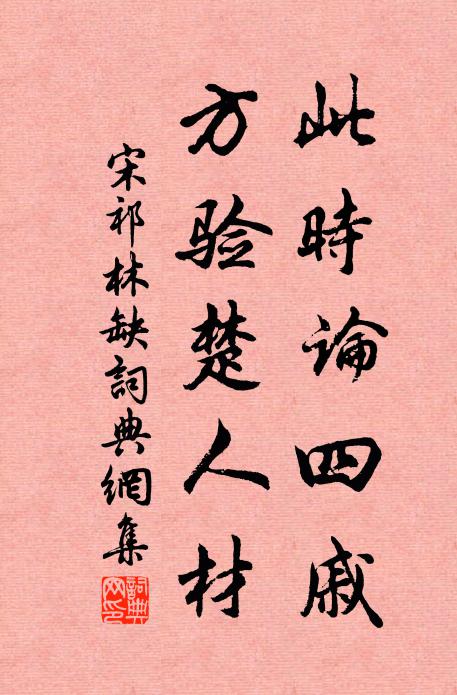 此時論四戚
方验楚人材
宋祁林缺詞典網集
詞典網印